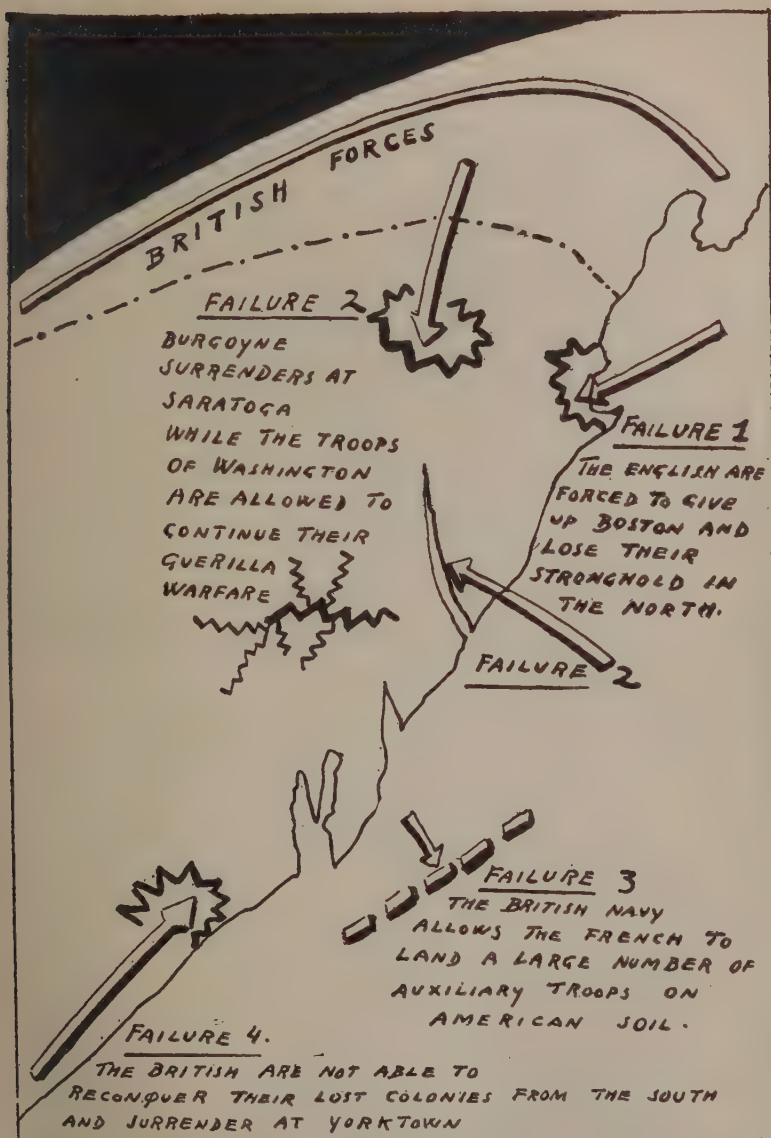 BRITISH FORCES
FAILURE 2
BURGOYNE
SURRENDERS AT
SARATOGA
WHILE THE TROOPS
OF WASHINGTON
ARE ALLOWED TO
CONTINUE THEIR
GUERILLA
WARFARE
FAILURE 1
THE ENGLISH ARE
FORCED TO GIVE
UP BOSTON AND
LOSE THEIR
STRONGHOLD IN
THE NORTH.
FAILURE 2
FAILURE 3
THE BRITISH NAVY
ALLOWS THE FRENCH TO
LAND A LARGE NUMBER OF
AUXILIARY TROOPS ON
AMERICAN SOIL.
FAILURE 4.
THE BRITISH ARE NOT ABLE TO
RECONQUER THEIR LOST COLONIES FROM THE SOUTH
AND SURRENDER AT YORKTOWN